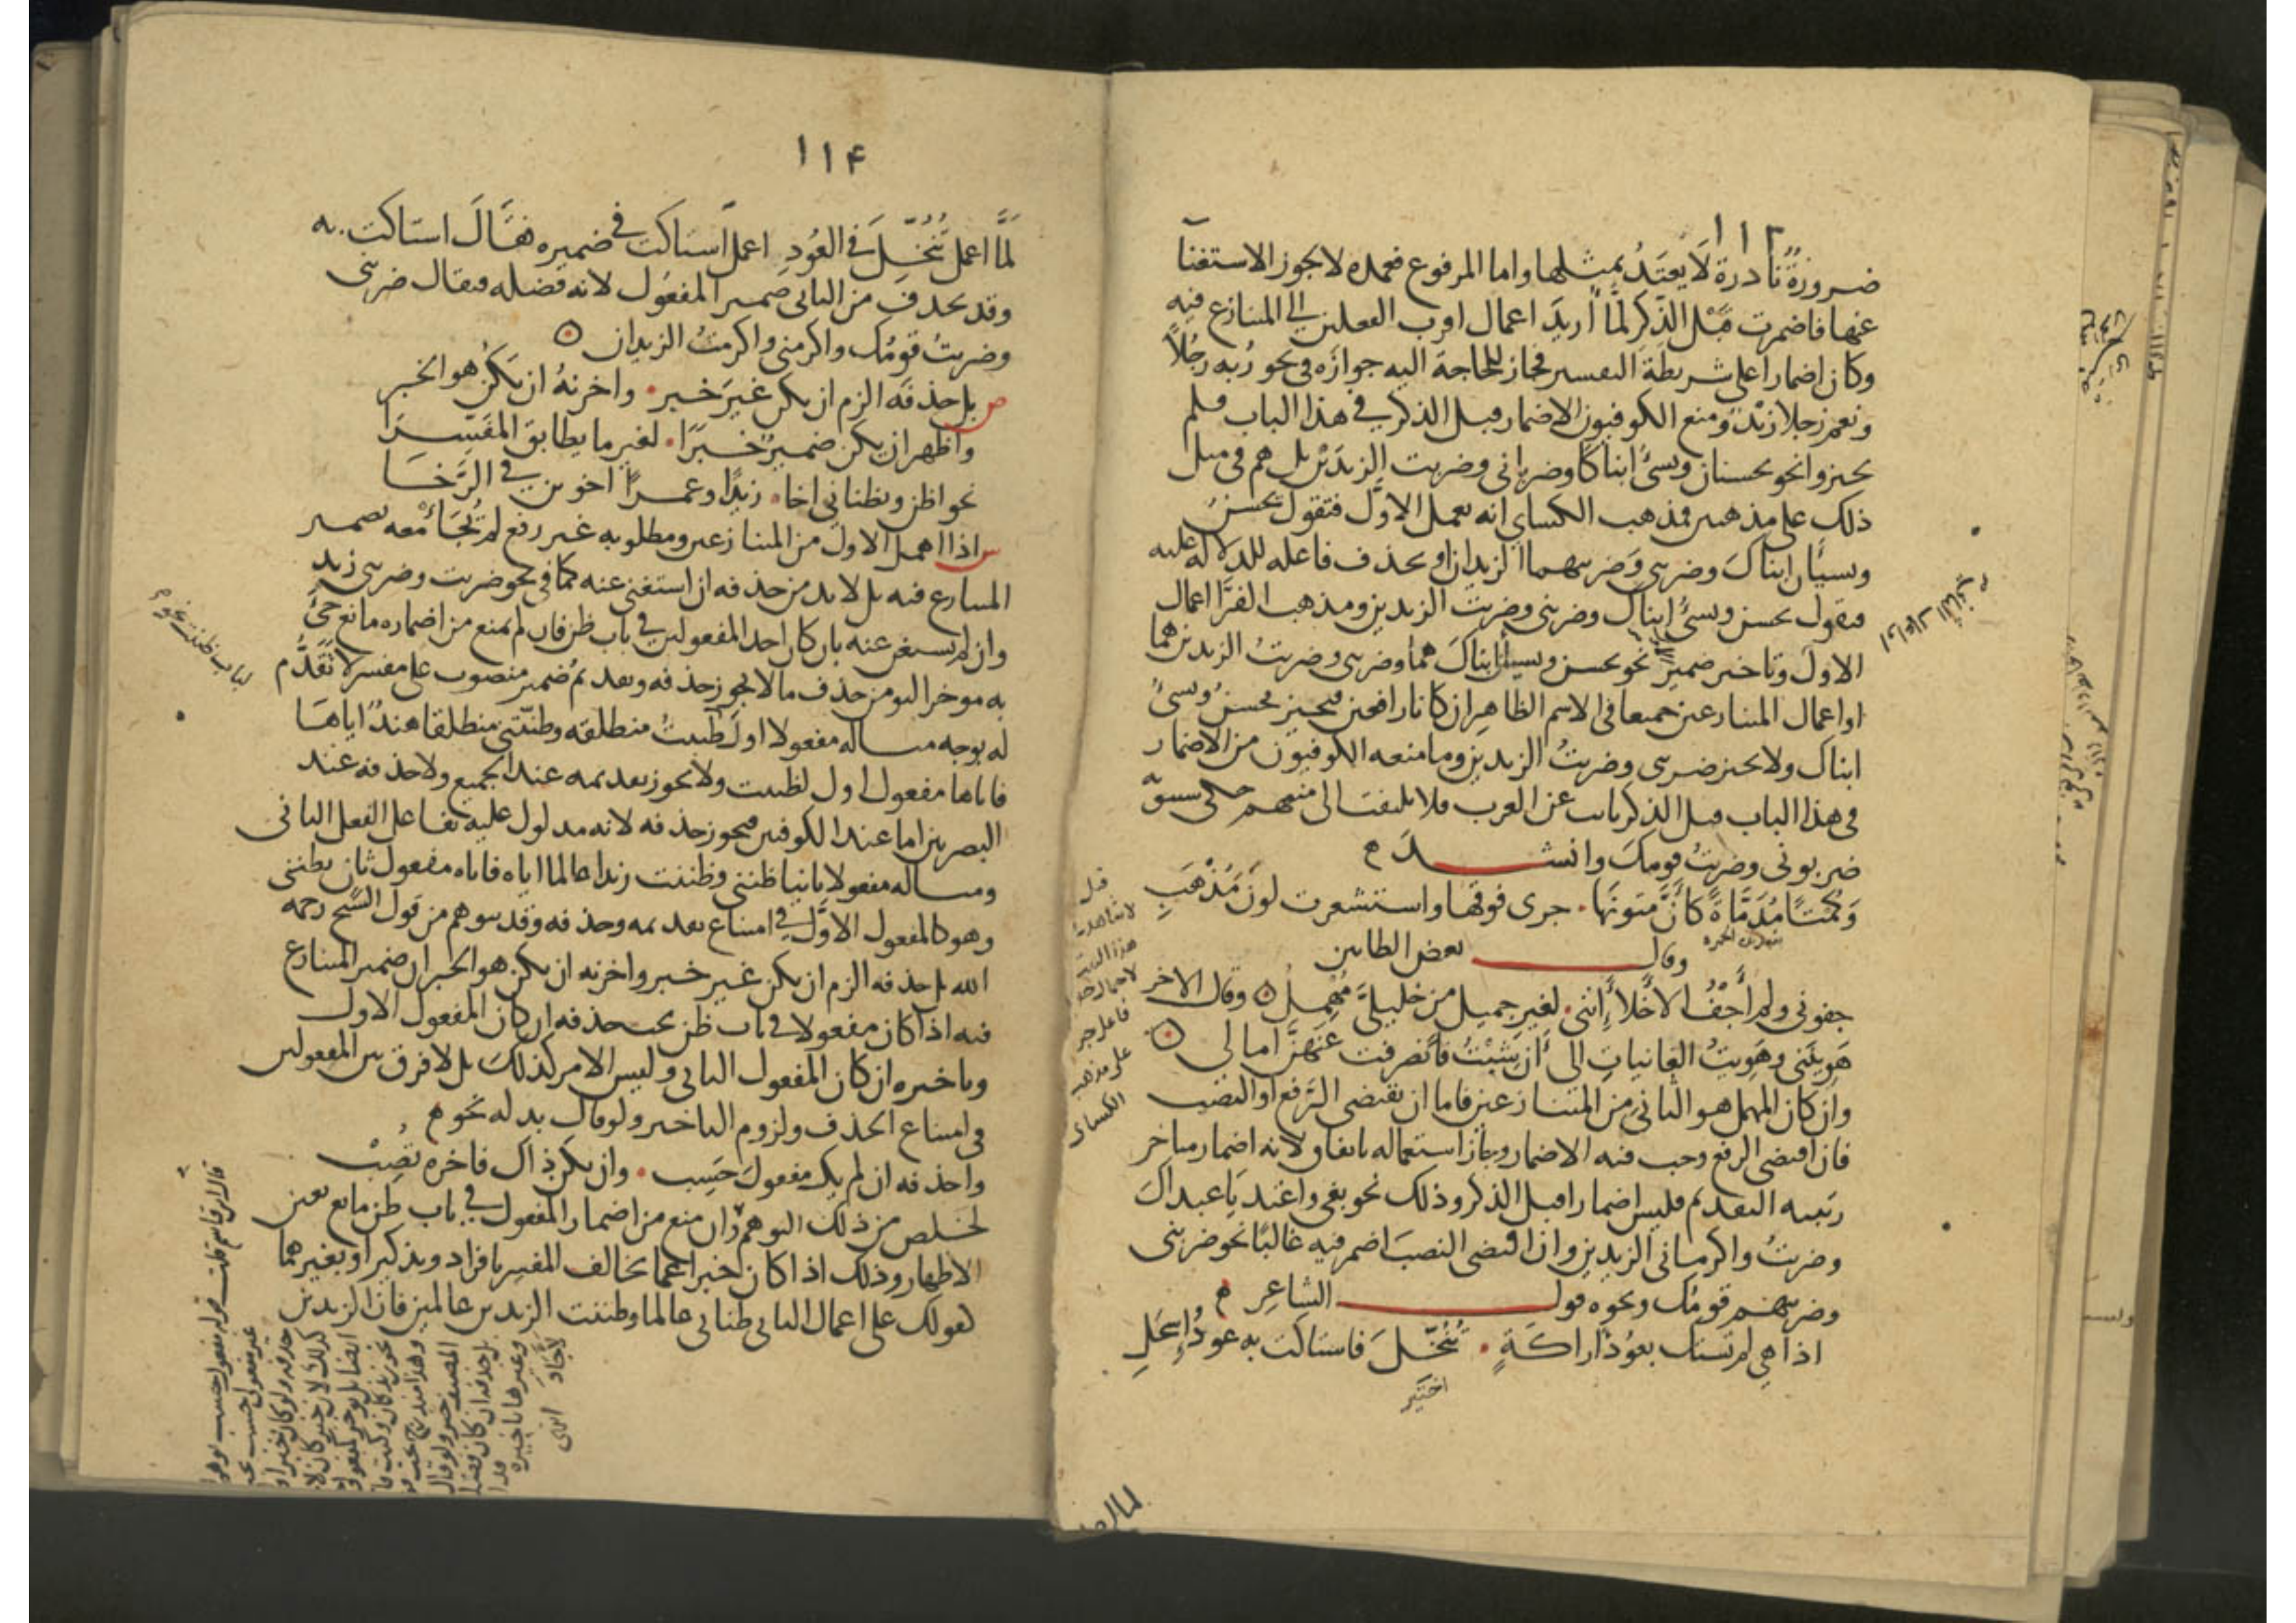 ١١٣
ضرورة نادرة لا يعتد بمثلها واما المرفوع فعمده لا يجوز الاستغنا
عنها فاضمرت قبل الذكر لما أريد اعمال اقرب الفعلين الى المتنازع فيه
وكان اضمارا على شريطة التفسير فجاز للحاجة اليه جوازه فى نحو ربه رجلا
ونعم رجلا زيد ومنع الكوفيون الاضمار قبل الذكر في هذا الباب فلم
يجيزوا نحو يحسنان ويسئ ابناكا وضربانى وضربت الزيدين بل هم فى مثل
ذلك على مذهبين فمذهب الكساي انه يعمل الاول فتقول يحسن
ويسيأن ابناك وضربنى وضربتهما الزيدان او يحذف فاعله للدلاله عليه
فتقول يحسن ويسئ ابناك وضربنى وضربت الزيدين ومذهب الفرا اعمال
الاول وتاخير ضمير نحو يحسن ويسئ ابناك هما وضربنى وضربت الزيدين هما
او اعمال المتنازعين جميعا فى الاسم الظاهر ان كانا رافعين فيجيز يحسن ويسئ
ابناك ولا يجيز ضربنى وضربت الزيدين وما منعه الكوفيون من الاضمار
فى هذا الباب قبل الذكر ثابت عن العرب فلا يلتفت الى منعهم حكى سيبويه
ضربونى وضربت قومك وانشد
وكمتا مدماة كأن متونها • جرى فوقها واستشعرت لون مذهب
وقال بعض الطايين
جفونى ولم أجف الأخلاء إننى • لغير جميل من خليلى مهمل وقال الاخر
هوينني وهويت الغانيات الى أن شبت فانصرفت عنهن امالى
وان كان المهمل هو الثانى من المتنازعين فاما ان يقتضى الرفع او النصب
فان اقتضى الرفع وجب فيه الاضمار وجاز استعماله باتفاق لانه اضمار متاخر
رتبته التقديم فليس اضمارا قبل الذكر وذلك نحو بغى واعتديا عبداك
وضربت واكرمانى الزيدين وان اقتضى النصب اضمر فيه غالبا نحو ضربنى
وضربتهم قومك ونحوه قول الشاعر
اذا هي لم تستك بعود اراكة • تنخل فاستاكت به عود إسحل
اختير
قيل
لا شاهد
هذا البيت
فاعل جر
على مذهب
الكسائى
١١۴
لما اعمل تنخل في العود اعمل استاكت في ضميره فقال استاكت به
وقد يحذف من الثانى ضمير المفعول لانه فضله فيقال ضربنى
وضربت قومك واكرمنى واكرمت الزيدان
ص بل حذفه الزم ان يكن غير خبر • واخرنه ان يكن هو الخبر
واظهر ان يكن ضمير خبرا • لغير ما يطابق المفسرا
نحو اظن ويظنانى اخا • زيدا وعمرا اخوين في الرخا
س اذا اهمل الاول من المتنازعين ومطلوبه غير رفع لم تجأ معه بضمير
المتنازع فيه بل لابد من حذفه ان استغنى عنه كما فى نحو ضربت وضربنى زيد
وان لم يستغن عنه بان كان احد المفعولين في باب ظن فان لم يمنع من اضماره مانع جئ
به موخرا ليومن حذف ما لا يجوز حذفه وتقديم ضمير منصوب على مفسر لا تقدم
له بوجه مساله مفعولا اول ظننت منطلقه وظنتنى منطلقا هند اياها
فاياها مفعول اول لظننت ولا يجوز تقديمه عند الجميع ولا حذفه عند
البصريين اما عند الكوفيين فيجوز حذفه لانه مدلول عليه بفاعل الفعل الثانى
ومساله مفعولا ثانيا ظننى وظننت زيدا عالما اياه فاياه مفعول ثان بظننى
وهو كالمفعول الاول في امتناع تقديمه وحذفه وقد يتوهم من قول الشيخ رحمه
الله بل حذفه الزم ان يكن غير خبر واخرنه ان يكن هو الخبر ان ضمير المتنازع
فيه اذا كان مفعولا في باب ظن يجب حذفه ان كان المفعول الاول
وتاخيره ان كان المفعول الثانى وليس الامر كذلك بل لا فرق بين المفعولين
فى امتناع الحذف ولزوم التاخير ولو قال بدله نحو
واحذفه ان لم يك مفعول حسب • وان يكن ذاك فاخره تصب
لخلص من ذلك التوهم وان منع من اضمار المفعول في باب ظن مانع تعين
الاظهار وذلك اذا كان خبرا عما يخالف المفسر بافراد وتذكير او بغيرهما
كقولك على اعمال الثانى ظنانى عالما وظننت الزيدين عالمين فان الزيدين
لباب ظننت نحو